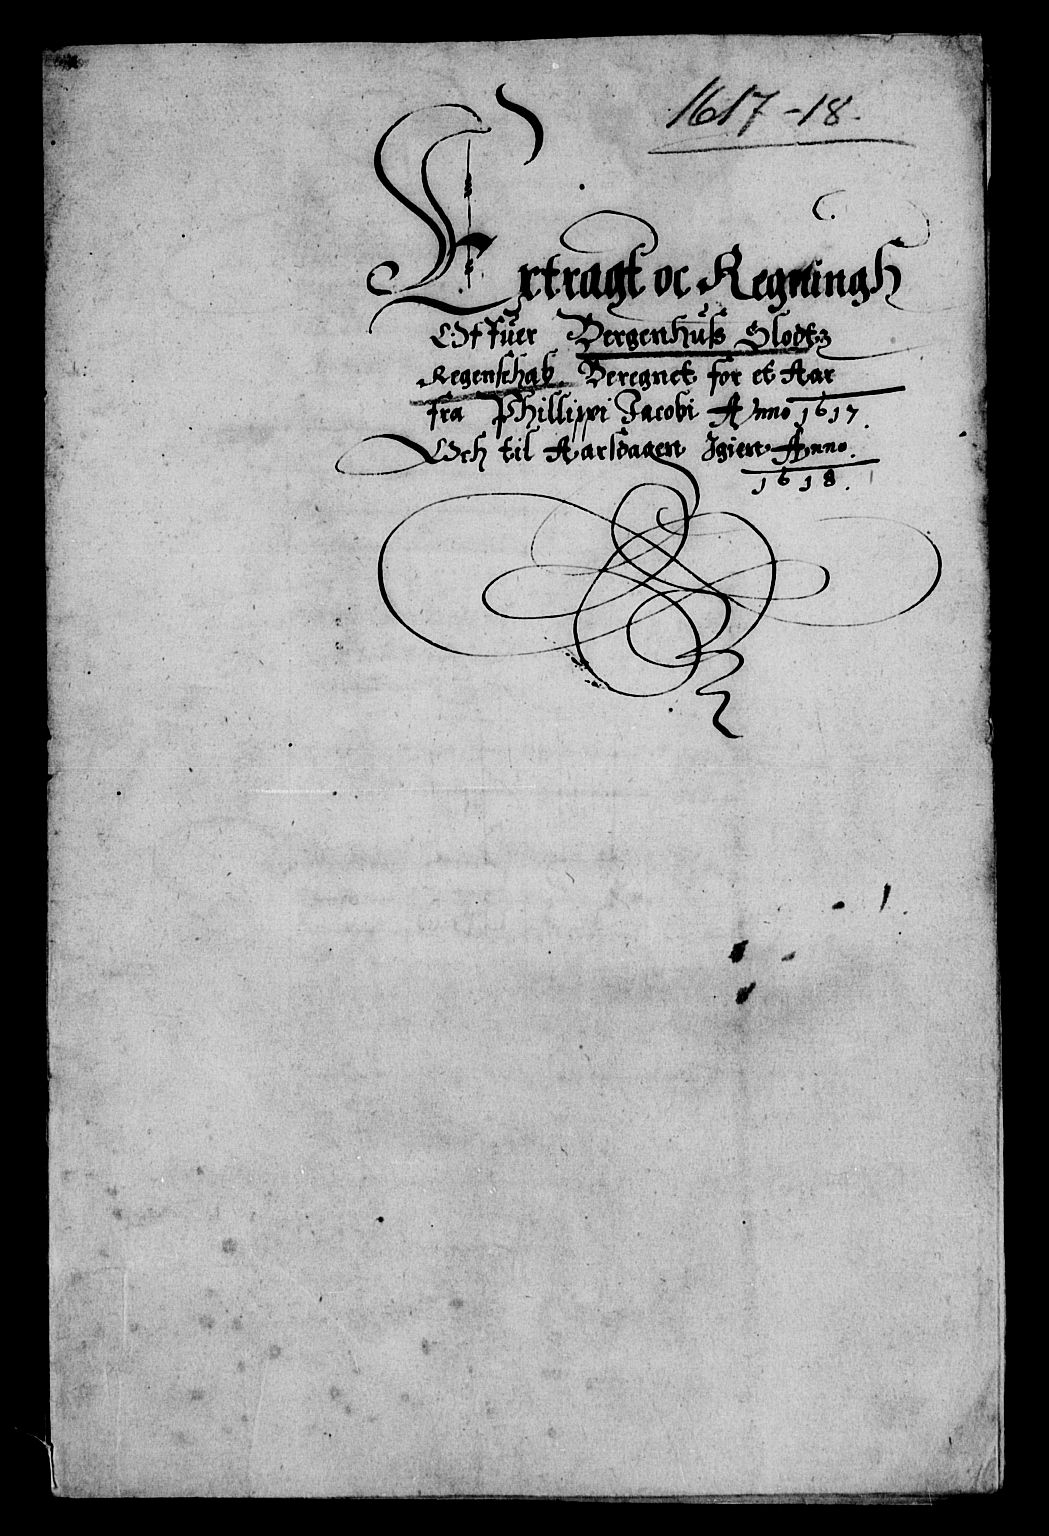 1617-18.
Extragt oc Regningh
Offuer Bergenhuss Slodtz
Regenschab Beregnet for et Aar
fra Phillippi Jacobi Anno 1617.
Och til Aarsdagen Igien Anno.
1618.